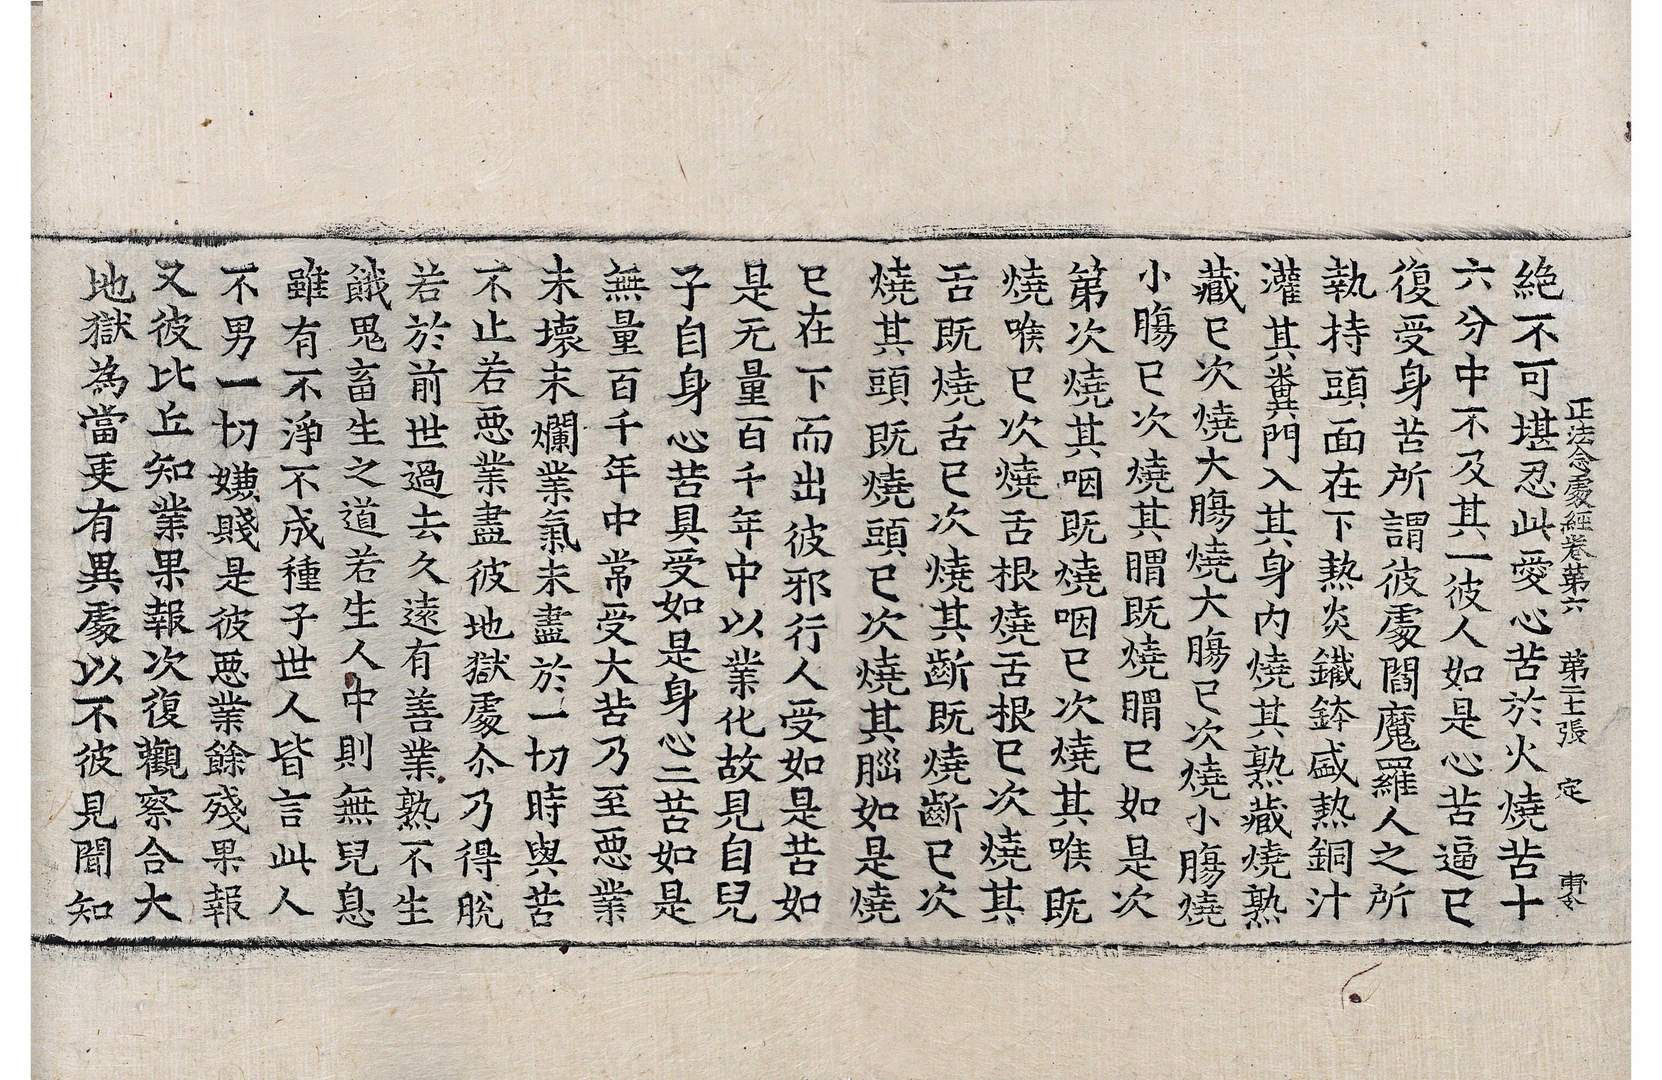 正法念處經卷第六 第二十張 定
絶不可堪忍此愛心苦於火燒苦十
六分中不及其一彼人如是心苦逼已
復受身苦所謂彼處閻魔羅人之所
執持頭面在下熱炎鐵鉢盛熱銅汁
灌其糞門入其身内燒其熟藏燒熟
藏已次燒大膓燒大膓已次燒小膓燒
小膓已次燒其䐜既燒䐜已如是次
第次燒其咽既燒咽已次燒其喉既
燒喉已次燒舌根燒舌根已次燒其
舌既燒舌已次燒其齗既燒齗已次
燒其頭既燒頭已次燒其腦如是燒
已在下而出彼邪行人受如是苦如
是无量百千年中以業化故見自兒
子自身心苦具受如是身心二苦如是
無量百千年中常受大苦乃至悪業
未壞未爛業氣未盡於一切時與苦
不止若悪業盡彼地獄處尒乃得脫
若於前世過去久遠有善業熟不生
餓鬼畜生之道若生人中則無兒息
雖有不淨不成種子世人皆言此人
不男一切嫌賤是彼悪業餘殘果報
又彼比丘知業果報次復觀察合大
地獄為當更有異處以不彼見聞知